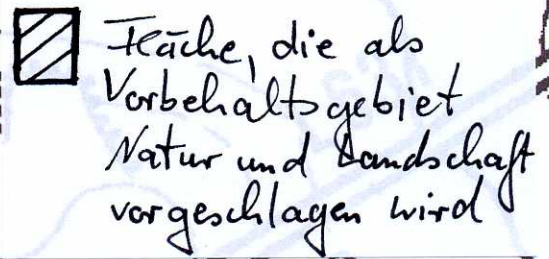 Fläche, die als
Vorbehaltsgebiet
Natur und Landschaft
vorgeschlagen wird